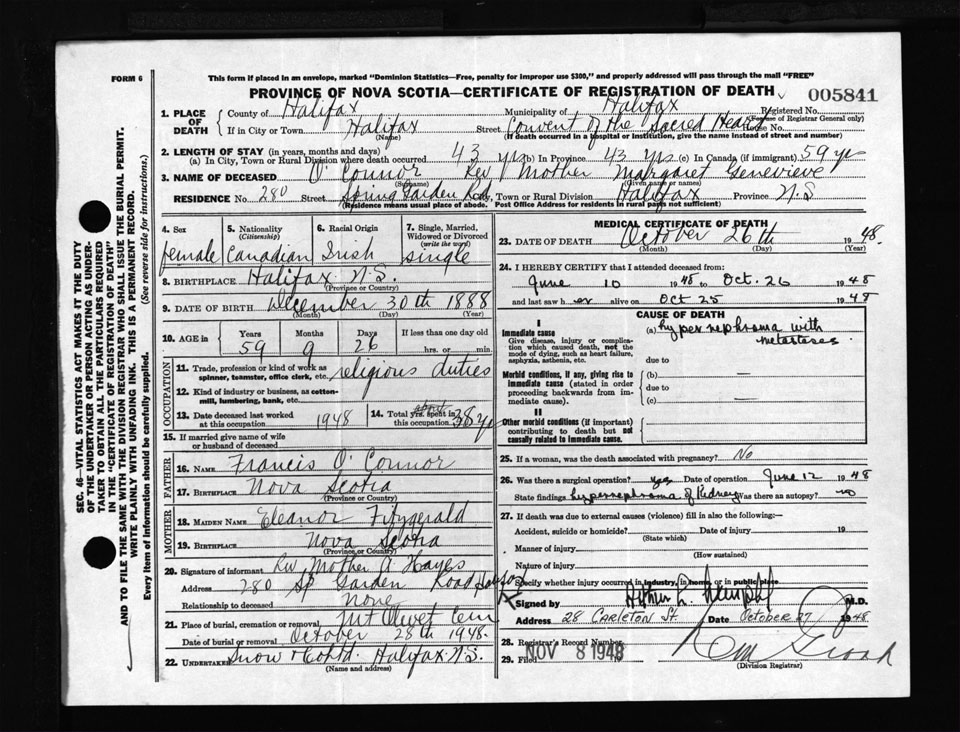 FORM 6
This form if placed in an envelope, marked "Dominion Statistics—Free, penalty for improper use $300," and properly addressed will pass through the mail "FREE"
PROVINCE OF NOVA SCOTIA—CERTIFICATE OF REGISTRATION OF DEATH
005841
1. PLACE OF DEATH
County of Halifax Municipality of Halifax Registered No.
(For use of Registrar General only)
If in City or Town Halifax Street Convent of the Sacred Heart House No.
(Name) (If death occurred in a hospital or institution, give the name instead of street and number)
2. LENGTH OF STAY (in years, months and days)
(a) In City, Town or Rural Division where death occurred 43 yrs (b) In Province 43 yrs (c) In Canada (if immigrant) 59 yrs
3. NAME OF DECEASED O'Connor Rev Mother Margaret Genevieve
(Surname) (Given name or names)
RESIDENCE No. 280 Street Spring Garden Rd City, Town or Rural Division Halifax Province N.S
(Residence means usual place of abode. Post Office Address for residents in rural parts not sufficient)
4. Sex female
5. Nationality (Citizenship) Canadian
6. Racial Origin Irish
7. Single, Married, Widowed or Divorced (write the word) single
8. BIRTHPLACE Halifax N.S.
9. DATE OF BIRTH December 30th 1888
(Month) (Day) (Year)
10. AGE in Years 59 Months 9 Days 26 If less than one day old hrs. or min.
OCCUPATION
11. Trade, profession or kind of work as spinner, teamster, office clerk, etc. religious duties
12. Kind of industry or business, as cotton-mill, lumbering, bank, etc.
13. Date deceased last worked at this occupation 1948
14. Total yrs. spent in this occupation about 38 yrs
15. If married give name of wife or husband of deceased
FATHER
16. NAME Francis O'Connor
17. BIRTHPLACE Nova Scotia
(Province or Country)
MOTHER
18. MAIDEN NAME Eleanor Fitzgerald
19. BIRTHPLACE Nova Scotia
(Province or Country)
20. Signature of informant Rev Mother A Hayes
Address 280 Sp Garden Road Halifax
Relationship to deceased None
21. Place of burial, cremation or removal Mt Olivet Cem
Date of burial or removal October 28th 1948.
22. UNDERTAKER Snow & Co Ltd. Halifax N.S.
(Name and address)
MEDICAL CERTIFICATE OF DEATH
23. DATE OF DEATH October 26th 1948.
(Month) (Day) (Year)
24. I HEREBY CERTIFY that I attended deceased from:
June 10 1948 to Oct. 26 1948
and last saw her alive on Oct 25 1948
CAUSE OF DEATH
I
Immediate cause
Give disease, injury or complication which caused death, not the mode of dying, such as heart failure, asphyxia, asthenia, etc.
(a) hypernephroma with metastases
due to
Morbid conditions, if any, giving rise to immediate cause (stated in order proceeding backwards from immediate cause).
(b) —
due to
(c) —
II
Other morbid conditions (if important) contributing to death but not causally related to immediate cause.
25. If a woman, was the death associated with pregnancy? No
26. Was there a surgical operation? yes Date of operation June 12 1948
State findings hypernephroma of kidney Was there an autopsy? no
27. If death was due to external causes (violence) fill in also the following:—
Accident, suicide or homicide? Date of injury 19
(State which)
Manner of injury
(How sustained)
Nature of injury
Specify whether injury occurred in industry, in home, or in public place
Signed by M.D.
Address 28 Carleton St. Date October 27 1948
28. Registrar's Record Number
29. Filed NOV 8 1948
(Division Registrar)
SEC. 46—VITAL STATISTICS ACT MAKES IT THE DUTY
OF THE UNDERTAKER OR PERSON ACTING AS UNDER-
TAKER TO OBTAIN ALL THE PARTICULARS REQUIRED
IN THE "CERTIFICATE OF REGISTRATION OF DEATH"
AND TO FILE THE SAME WITH THE DIVISION REGISTRAR WHO SHALL ISSUE THE BURIAL PERMIT.
WRITE PLAINLY WITH UNFADING INK. THIS IS A PERMANENT RECORD.
Every item of information should be carefully supplied. (See reverse side for instructions.)